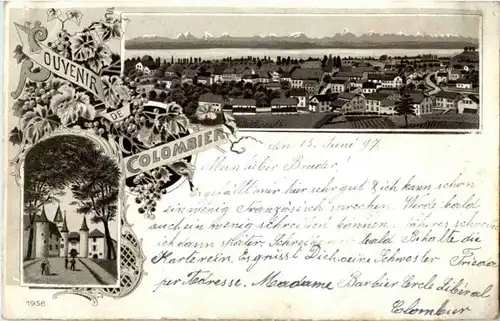 SOUVENIR
DE
COLOMBIER
den 13. Juni 97.
Mein lieber Bruder!
Es gefällt mir hier sehr gut & ich kann schon
ein wenig Französisch sprechen. Werde bald
auch ein wenig schreiben können. Näheres schreibe
ich dann später. Schreibe bald. Behalte die
Karte rein. Es grüsst Dich deine Schwester Frieda
per Adresse. Madame Barbier Cercle Libéral
Colombier
1956